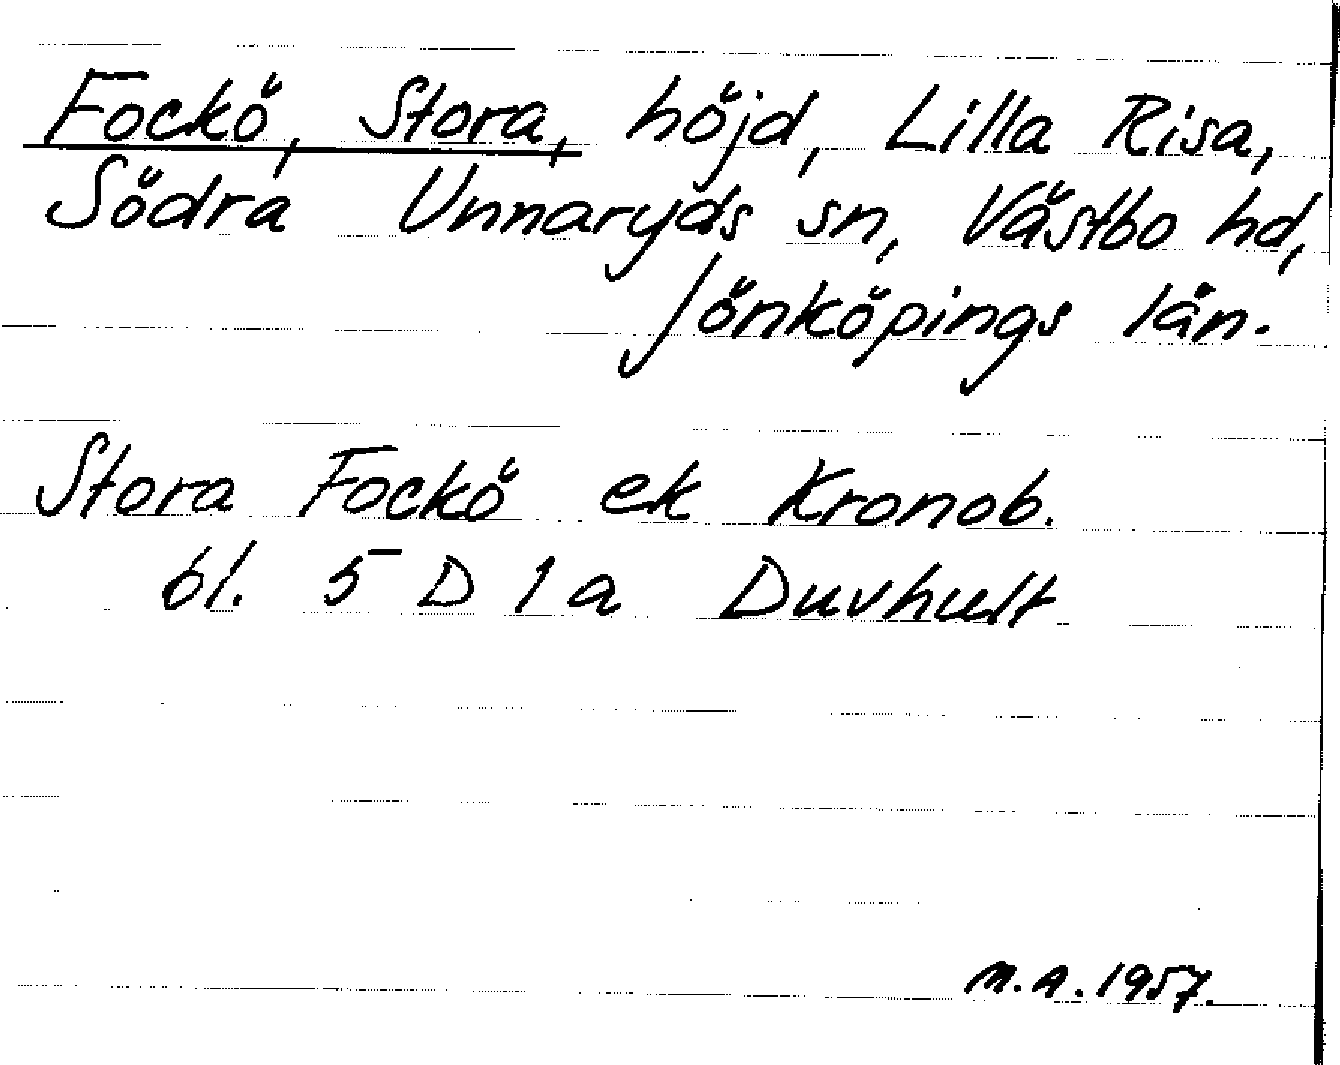 Fockö, Stora, höjd, Lilla Risa,
Södra Unnaryds sn, Västbo hd,
Jönköpings län.
Stora Fockö ek Kronob.
bl. 5 D 1 a Duvhult
M.A. 1957.